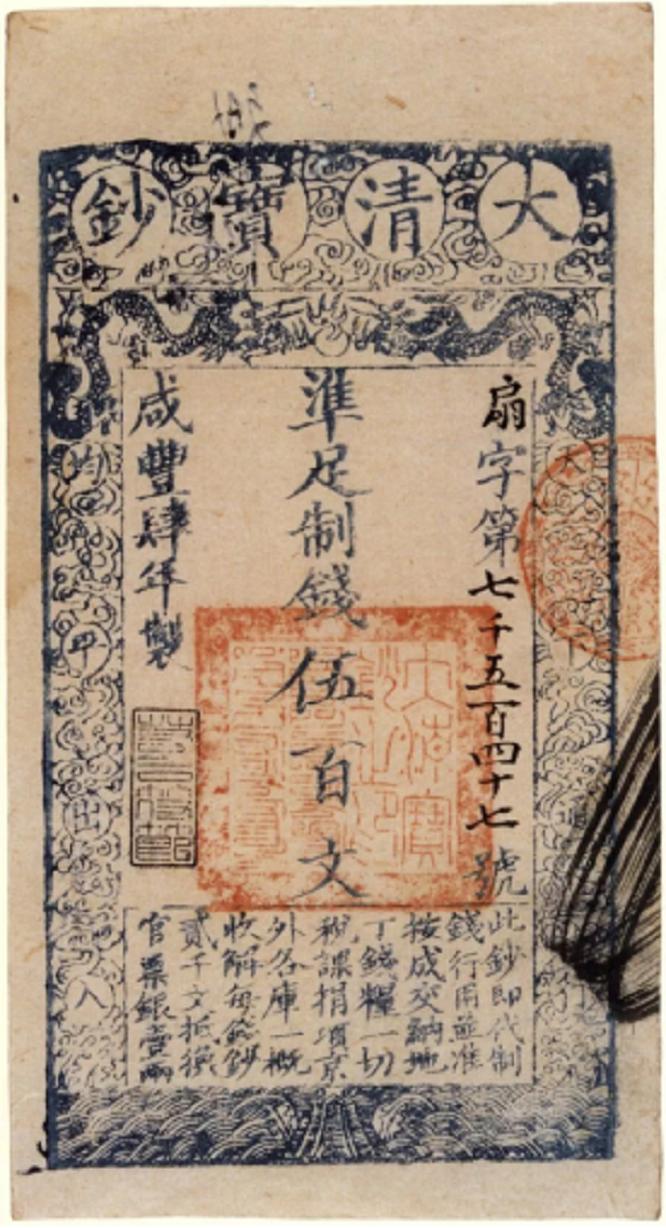 大清寶鈔
扇字第七千五百四十七號
準足制錢伍百文
咸豐肆年製
此鈔即代制
錢行用並准
按成交納地
丁錢糧一切
稅課捐項京
外各庫一概
收解每鈔
貳千文抵換
官票銀壹兩
均平出入